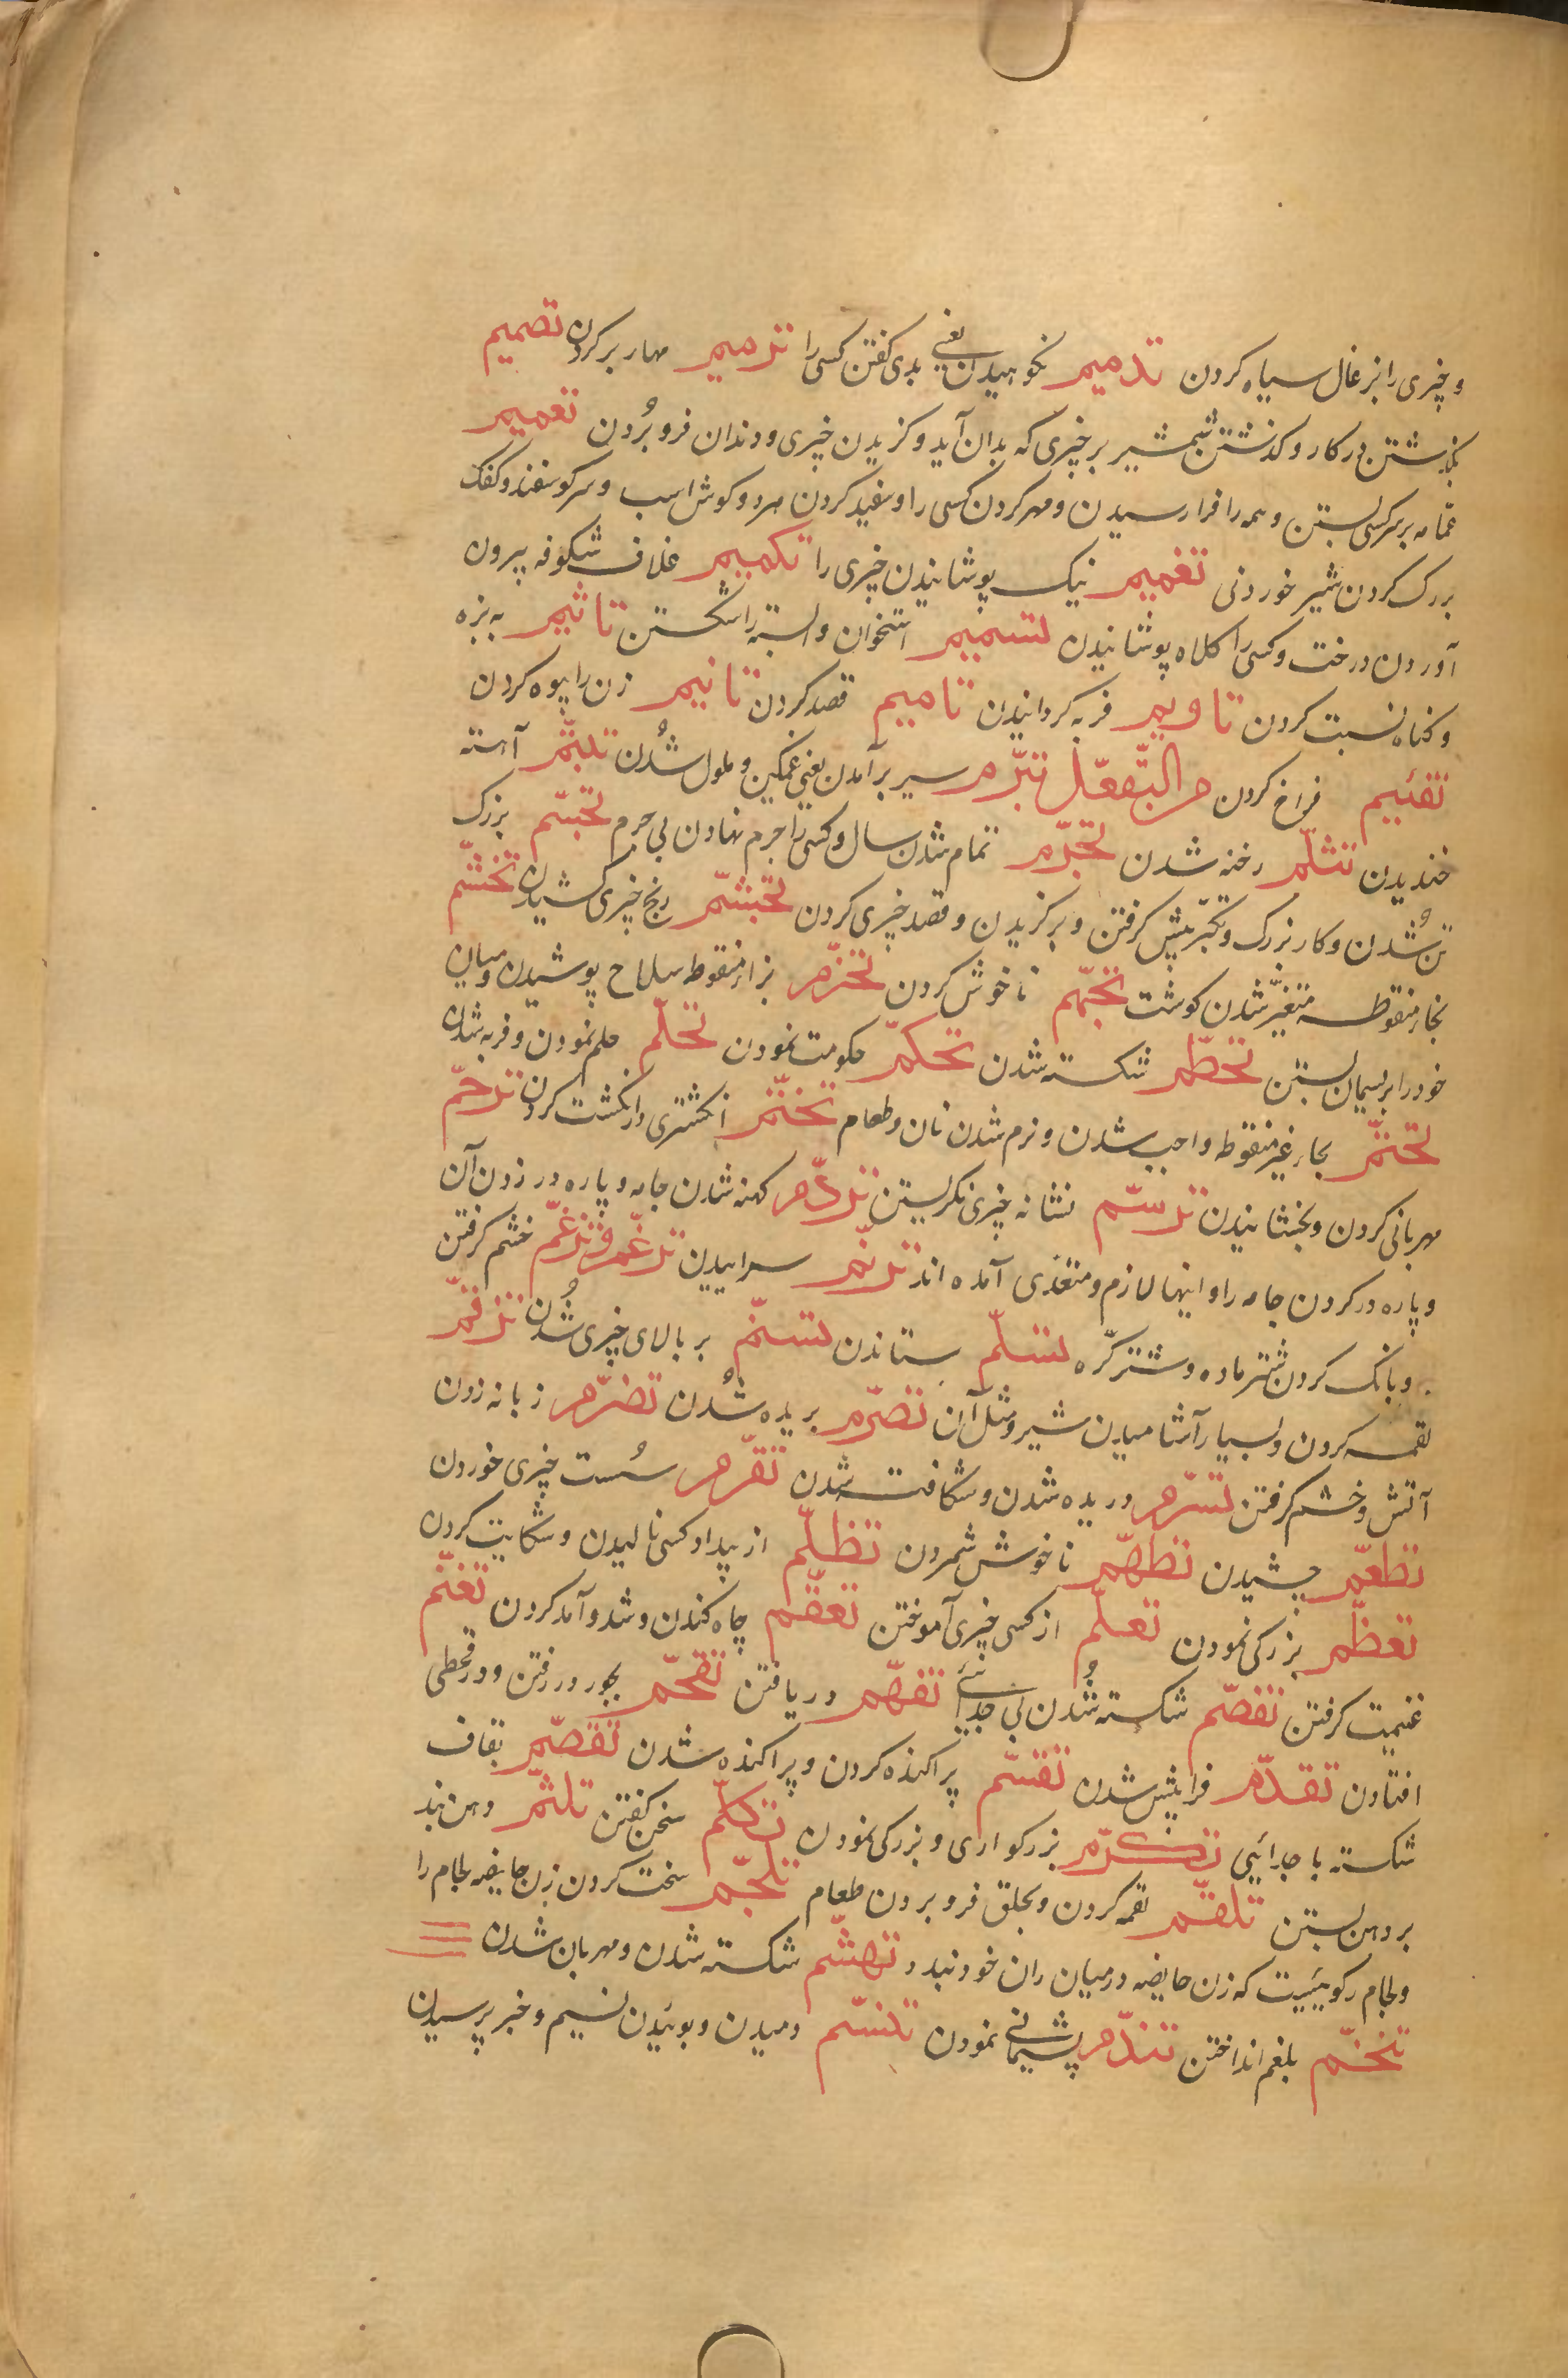 و چیزی را بزغال سیاه کردن تذمیم نکوهیدن یعنی بدی کفتن کسی را تزمیم مهار بر کردن تصمیم
بکذشتن در کار و کذشتن شمشیر بر چیزی که بدان آید و کزیدن چیزی و دندان فرو بُردن تعمیم
عمامه بر سر کسی بستن و همه را فرا رسیدن و مهر کردن کسی را و سفید کردن مرد و کوش اسب و سر کوسفند و کفک
بزرک کردن شیر خوردنی تغمیم نیک پوشانیدن چیزی را تکمیم غلاف شکوفه بیرون
آوردن درخت و کسی را کلاه پوشانیدن تسمیم استخوان و بسته را شکستن تاثیم به بزه
و کناه نسبت کردن تاویم فربه کردانیدن تامیم قصد کردن تانیم زن را بیوه کردن
تفئیم فراخ کردن من التّفعّل تبرّم سیر بر آمدن یعنی غمکین و ملول شُدن تبسّم آهسته
خندیدن تثلّم رخنه شدن تجرّم تمام شدن سال و کسی را جرم نهادن بی جرم تجسّم بزرک
تن شُدن و کار بزرک و تکبّر پیش کرفتن و بر کزیدن و قصد چیزی کردن تجشّم رنج چیزی کشیدن تخشّم
بخاء منقوطه متغیّر شدن کوشت تجهّم ناخوش کردن تحزّم بزاء منقوطه سلاح پوشیدن و میان
خود را بریسمان بستن تحطّم شکسته شدن تحکّم حکومت نمودن تحلّم حلم نمودن و فربه شدن
تحتّم بحاء غیر منقوطه واجب شدن و نرم شدن نان و طعام تختّم انکشتری در انکشت کردن ترحّم
مهربانی کردن و بخشانیدن ترسّم نشانه چیزی نکریستن تردّم کهنه شدن جامه و پاره در زدن آن
و پاره در کردن جامه را و اینها لازم و متعدّی آمده اند ترنّم سراییدن ترغّم و تزغّم خشم کرفتن
و بانک کردن شتر ماده و شتر کرّه تسلّم ستاندن تسنّم بر بالای چیزی شُدن تزقّم
لقمه کردن و بسیار آشامیدن شیر و مثل آن تصرّم بریده شُدن تضرّم زبانه زدن
آتش و خشم کرفتن تشرّم دریده شدن و شکافته شدن تقرّم سُست چیزی خوردن
تطعّم چشیدن تطهّم ناخوش شمردن تظلّم از بیداد کسی نالیدن و شکایت کردن
تعظّم بزرکی نمودن تعلّم از کسی چیزی آموختن تعقّم چاه کندن و شد و آمد کردن تغنّم
غنیمت کرفتن تفصّم شکسته شُدن بی جدائی تفهّم دریافتن تقحّم بجور در رفتن و در قحطی
افتادن تقدّم فرا پیش شدن تقسّم پراکنده کردن و پراکنده شدن تقصّم بقاف
شکسته با جدائیی تکرّم بزرکواری و بزرکی نمودن تکلّم سخن کفتن تلثّم دهن بند
بر دهن بستن تلقّم لقمه کردن و بحلق فرو بردن طعام تلجّم سخت کردن زن حایضه لجام را
و لجام رکوییست که زن حایضه در میان ران خود نبدد تهشّم شکسته شدن و مهربان شدن
تنخّم بلغم انداختن تندّم پشیمانی نمودن تنسّم دمیدن و بوئیدن نسیم و خبر پرسیدن